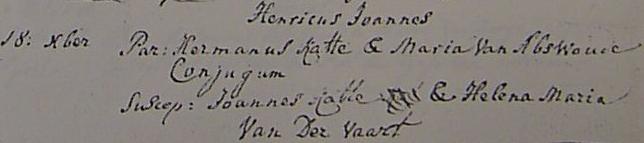 Henricus Joannes
18: Xber Par: Hermanus Katte & Maria Van Abswoude
Conjugum
Suscep: Joannes Katte & Helena Maria
Van Der Vaart